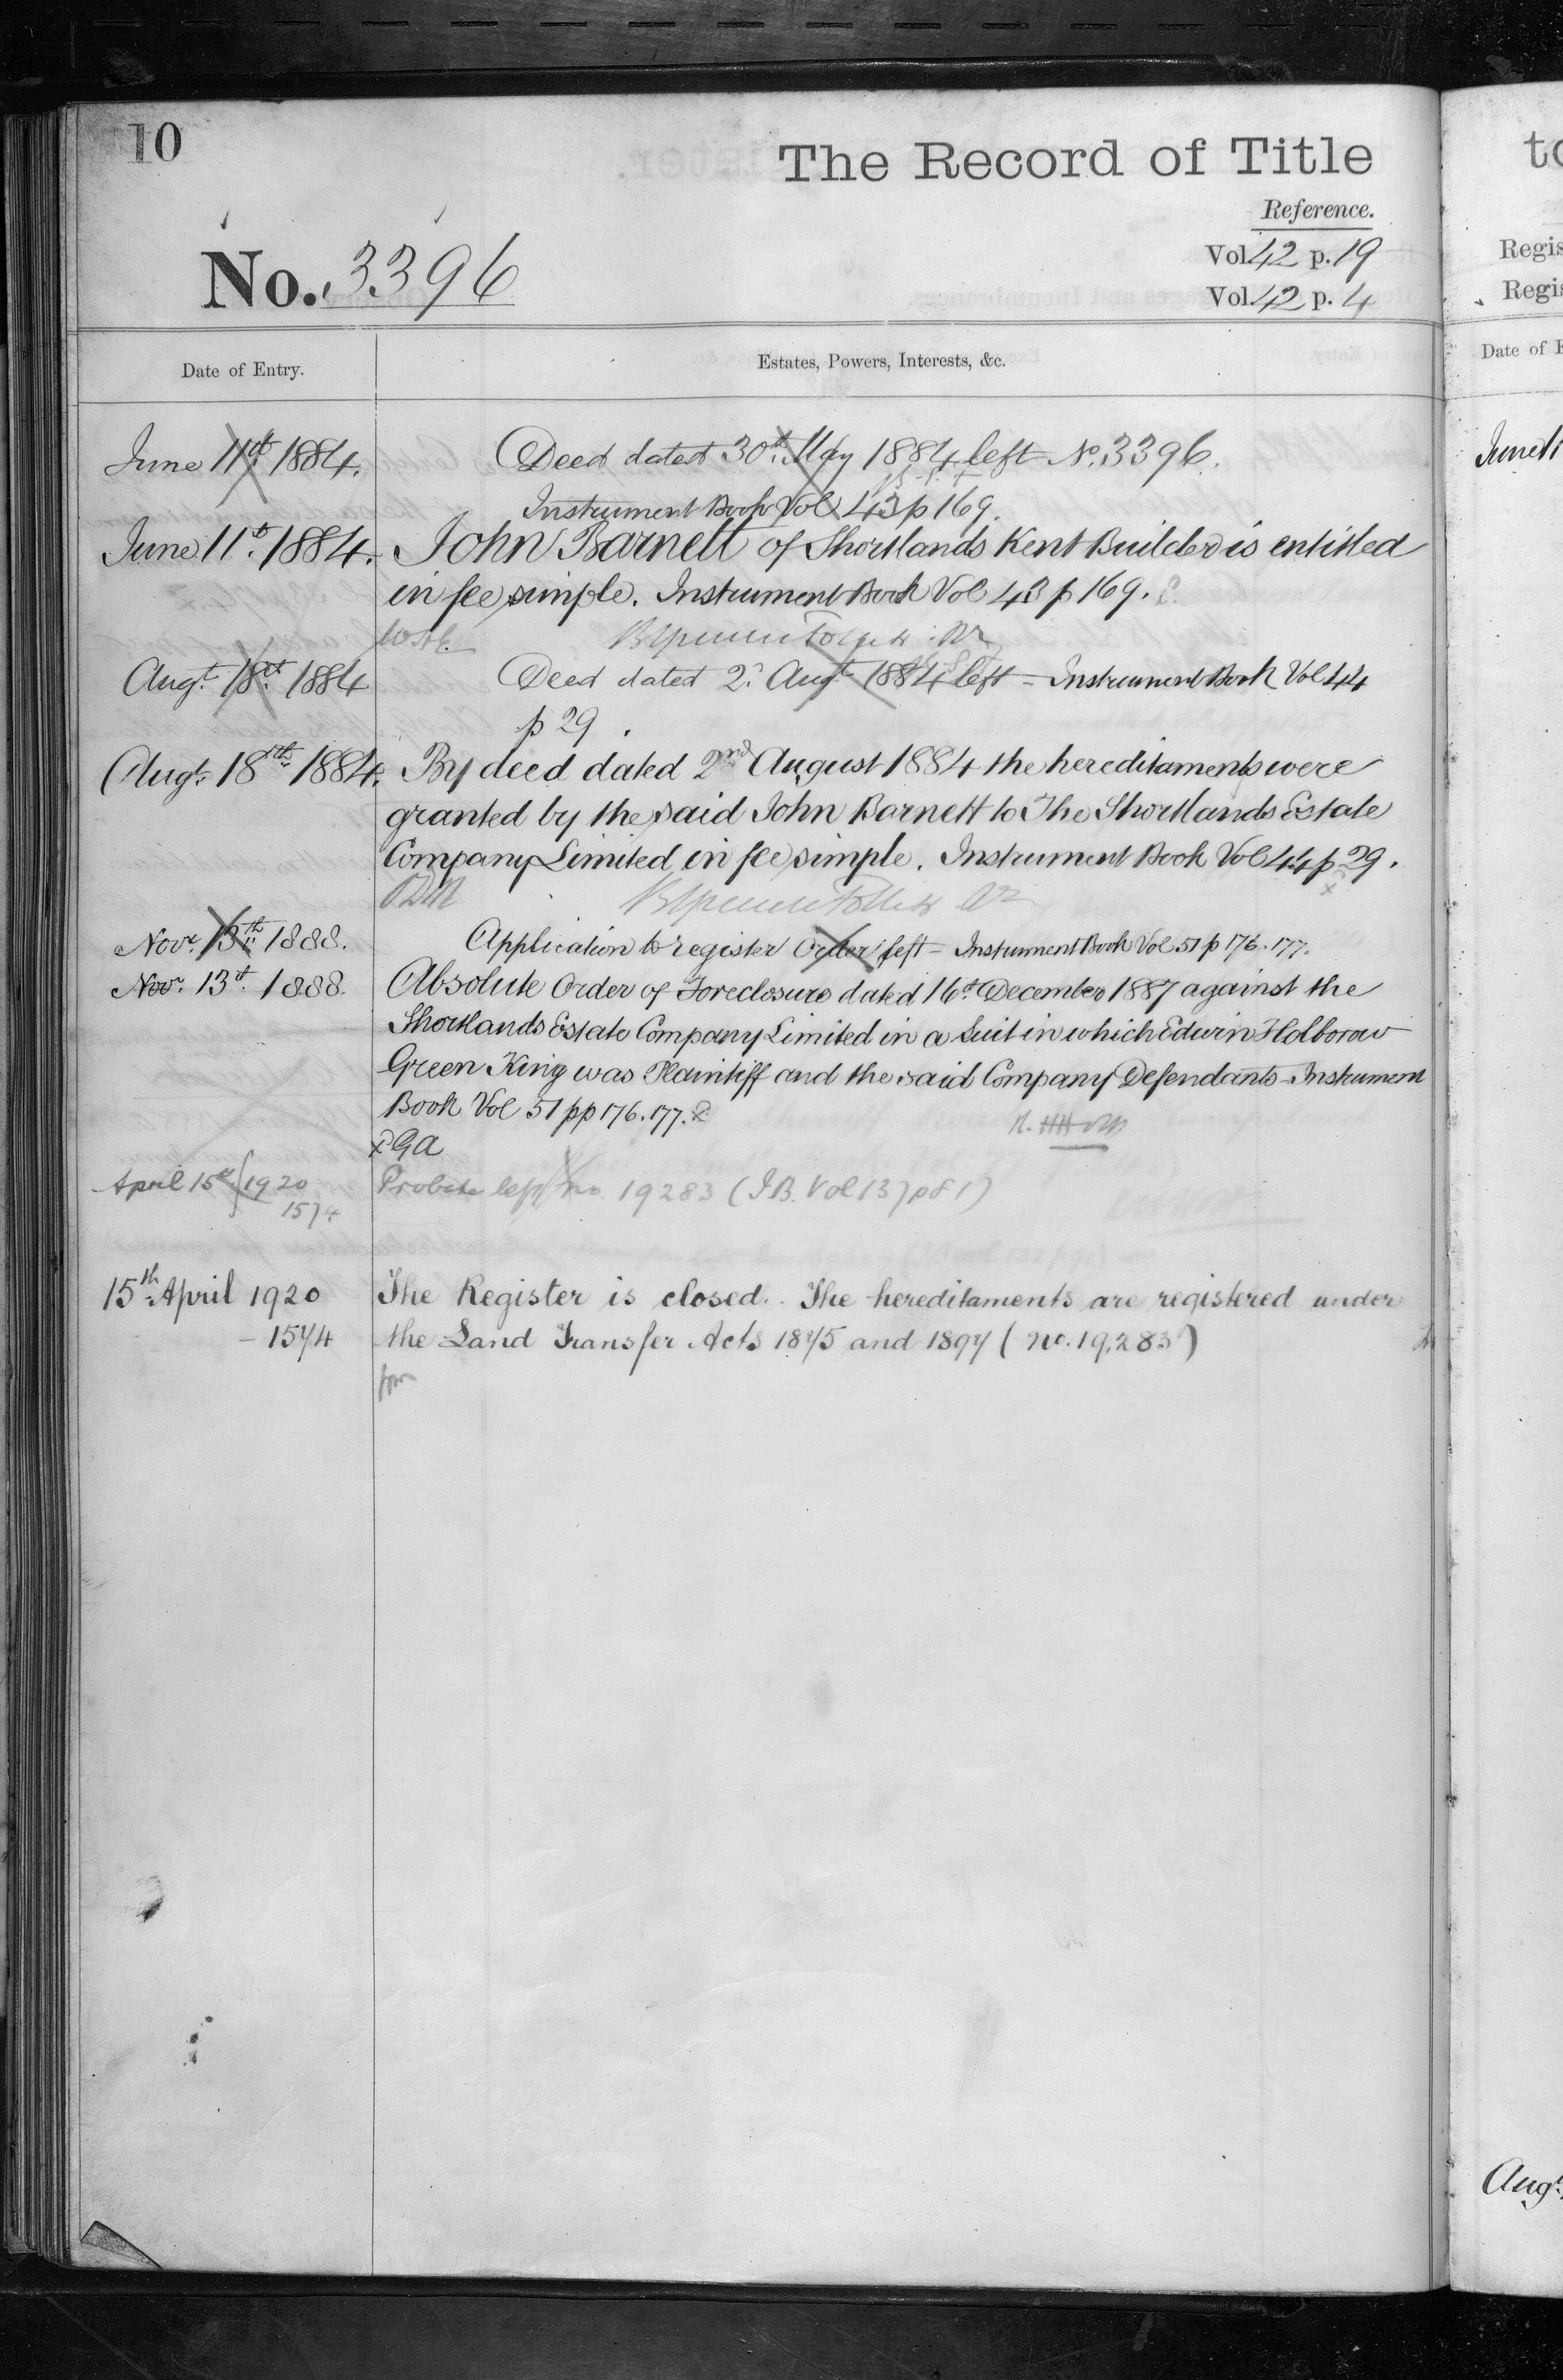 10
The Record of Title
Reference.
No. 3396
Vol. 42 p. 19
Vol. 42 p. 4
Date of Entry.
Estates, Powers, Interests, &c.
June 11th 1884. Deed dated 30th May 1884 left No. 3396.
Instrument Book Vol 43 p 169.
June 11th 1884. John Barnett of Shortlands Kent Builder is entitled
in fee simple. Instrument Book Vol 43 p 169.
Augt. 18th 1884 Deed dated 2d Augt 1884 left - Instrument Book Vol 44
p 29.
Augt. 18th 1884. By deed dated 2nd August 1884 the hereditaments were
granted by the said John Barnett to The Shortlands Estate
Company Limited in fee simple. Instrument Book Vol 44 p 29.
Novr. 13th 1888. Application to register Order left - Instrument Book Vol 51 p 176.177.
Novr. 13th 1888. Absolute Order of Foreclosure dated 16th December 1887 against the
Shortlands Estate Company Limited in a Suit in which Edwin Holborow
Green King was Plaintiff and the said Company Defendants - Instrument
Book Vol 51 pp 176.177.
April 15th 1920 Probate left no. 19283 (I.B. Vol 137 p 81)
1574
15th April 1920 The Register is closed. The hereditaments are registered under
- 1574 the Land Transfer Acts 1875 and 1897 (no. 19,283)
to
Regis
Regis
Date of E
June 11
Augt.